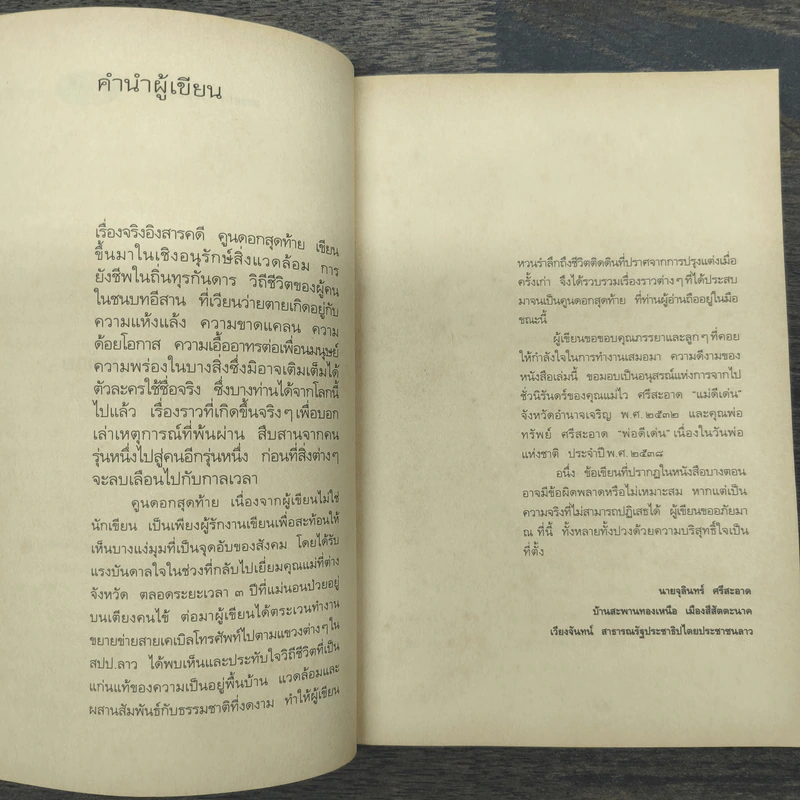 คำนำผู้เขียน
เรื่องจริงอิงสารคดี คูนดอกสุดท้าย เขียน
ขึ้นมาในเชิงอนุรักษ์สิ่งแวดล้อม การ
ยังชีพในถิ่นทุรกันดาร วิถีชีวิตของผู้คน
ในชนบทอีสาน ที่เวียนว่ายตายเกิดอยู่กับ
ความแห้งแล้ง ความขาดแคลน ความ
ด้อยโอกาส ความเอื้ออาทรต่อเพื่อนมนุษย์
ความพร่องในบางสิ่งซึ่งมิอาจเติมเต็มได้
ตัวละครใช้ชื่อจริง ซึ่งบางท่านได้จากโลกนี้
ไปแล้ว เรื่องราวที่เกิดขึ้นจริงๆ เพื่อบอก
เล่าเหตุการณ์ที่พ้นผ่าน สืบสานจากคน
รุ่นหนึ่งไปสู่คนอีกรุ่นหนึ่ง ก่อนที่สิ่งต่างๆ
จะลบเลือนไปกับกาลเวลา
คูนดอกสุดท้าย เนื่องจากผู้เขียนไม่ใช่
นักเขียน เป็นเพียงผู้รักงานเขียนเพื่อสะท้อนให้
เห็นบางแง่มุมที่เป็นจุดอับของสังคม โดยได้รับ
แรงบันดาลใจในช่วงที่กลับไปเยี่ยมคุณแม่ที่ต่าง
จังหวัด ตลอดระยะเวลา ๓ ปีที่แม่นอนป่วยอยู่
บนเตียงคนไข้ ต่อมาผู้เขียนได้ตระเวนทำงาน
ขยายข่ายสายเคเบิลโทรศัพท์ไปตามแขวงต่างๆ ใน
สปป.ลาว ได้พบเห็นและประทับใจวิถีชีวิตที่เป็น
แก่นแท้ของความเป็นอยู่พื้นบ้าน แวดล้อมและ
ผสานสัมพันธ์กับธรรมชาติที่งดงาม ทำให้ผู้เขียน
หวนรำลึกถึงชีวิตติดดินที่ปราศจากการปรุงแต่งเมื่อ
ครั้งเก่า จึงได้รวบรวมเรื่องราวต่างๆ ที่ได้ประสบ
มาจนเป็นคูนดอกสุดท้าย ที่ท่านผู้อ่านถืออยู่ในมือ
ขณะนี้
ผู้เขียนขอขอบคุณภรรยาและลูกๆ ที่คอย
ให้กำลังใจในการทำงานเสมอมา ความดีงามของ
หนังสือเล่มนี้ ขอมอบเป็นอนุสรณ์แห่งการจากไป
ชั่วนิรันดร์ของคุณแม่ไว ศรีสะอาด "แม่ดีเด่น"
จังหวัดอำนาจเจริญ พ.ศ. ๒๕๓๒ และคุณพ่อ
ทรัพย์ ศรีสะอาด "พ่อดีเด่น" เนื่องในวันพ่อ
แห่งชาติ ประจำปี พ.ศ. ๒๕๓๘
อนึ่ง ข้อเขียนที่ปรากฏในหนังสือบางตอน
อาจมีข้อผิดพลาดหรือไม่เหมาะสม หากแต่เป็น
ความจริงที่ไม่สามารถปฏิเสธได้ ผู้เขียนขออภัยมา
ณ ที่นี้ ทั้งหลายทั้งปวงด้วยความบริสุทธิ์ใจเป็น
ที่ตั้ง
นายจุลินทร์ ศรีสะอาด
บ้านสะพานทองเหนือ เมืองสีสัตตะนาค
เวียงจันทน์ สาธารณรัฐประชาธิปไตยประชาชนลาว